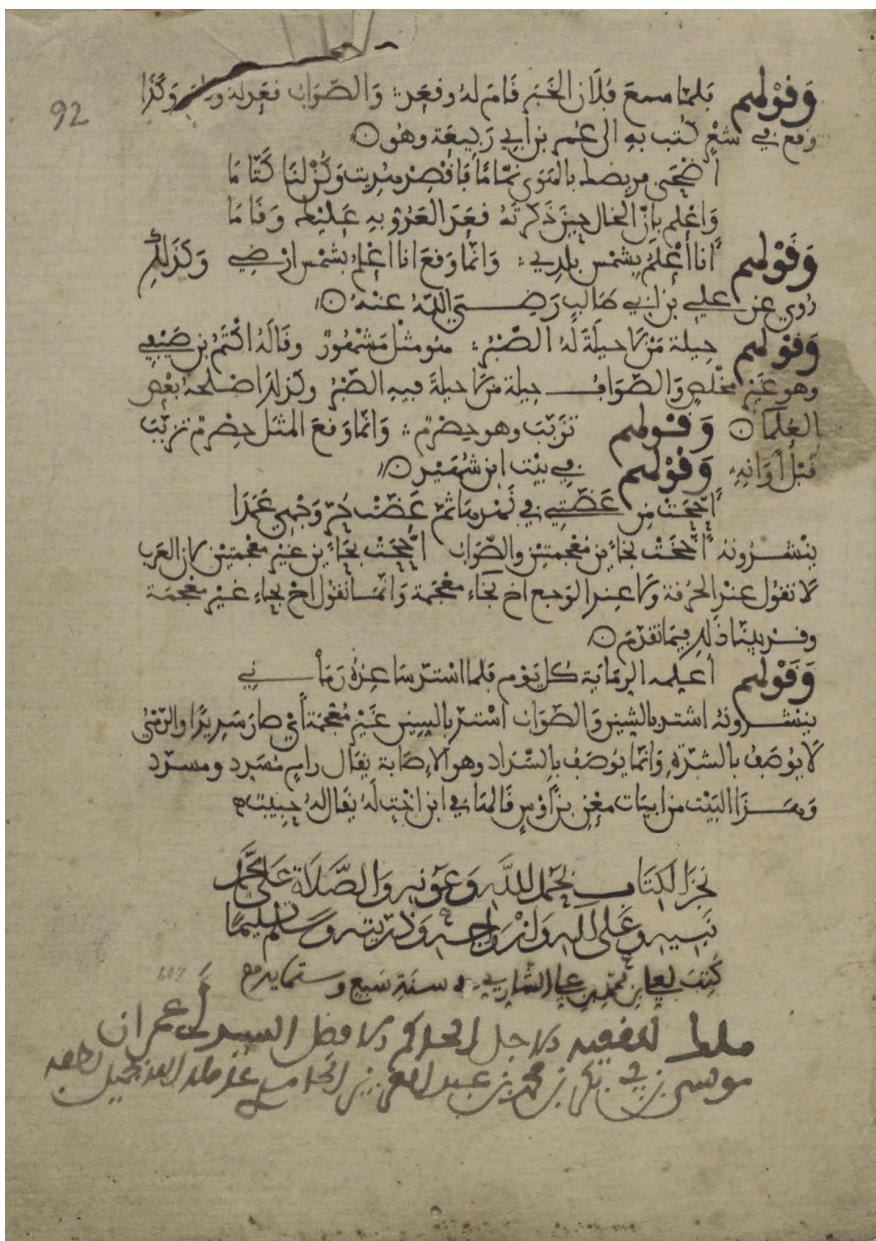 92
وقولهم فلما سمع فلان الخبر قام له وقعد؛ والصواب فقد له وقام وكذا
وقع في شعر كتب به الى عمر بن أبي ربيعة وهو
أضحى مريضك بالهوى نمّاما فاقصد هديت وكن لنا كتّاما
واعلم بأنّ الخال حين ذكرته قعد العدوّ به عليك وقاما
وقولهم أنا أعلم بشمس بلدي؛ وانّما وقع انا اعلم بشمس ارضي وكذلك
روي عن علي بن ابي طالب رضي الله عنه
وقولهم حيلة من لا حيلة له الصّبر؛ هو مثل مشهور وقاله اكثم بن صيفي
وهو غير مخلص والصّواب حيلة من لا حيلة فيه الصّبر وكذلك اصلحه بعض
العلما وقولهم تزبّب وهو حصرم؛ وانّما وقع المثل حصرم تزبّب
قبل أوانه وقولهم في بيت ابن شهيد
أححت من عضّتي في نهدها ثم عضّت حرّ وجهي عمدا
ينشدونه أخخت بخاءين معجمتين والصّواب أححت بحاءين غير معجمتين لان العرب
لا تقول عند الحرقة ولا عند الوجع اخ بخاء معجمة وانّما تقول اح بحاء غير معجمة
وقد بينّا ذلك فيما تقدم
وقولهم أعلمه الرماية كل يوم فلما اشتد ساعده رماني
ينشدونه اشتد بالشين والصّواب استد بالسين غير معجمة أي صار سديدا والرّمي
لا يوصف بالشدّة وانّما يوصف بالسّداد وهو الإصابة يقال رام مسدد ومسدّد
وهذا البيت من ابيات معن بن أوس قالها في ابن اخت له يقال له حبيب
نجز الكتاب بحمد الله وعونه والصّلاة على محمّد
نبيه وعلى اله وأزواجه وذرّيته وسلّم تسليما
كتب سنة سبع وستماية
607
للفقيه الاجل الحاكم الافضل السيد ابي عمران
موسى بن محمد بن عبد العزيز